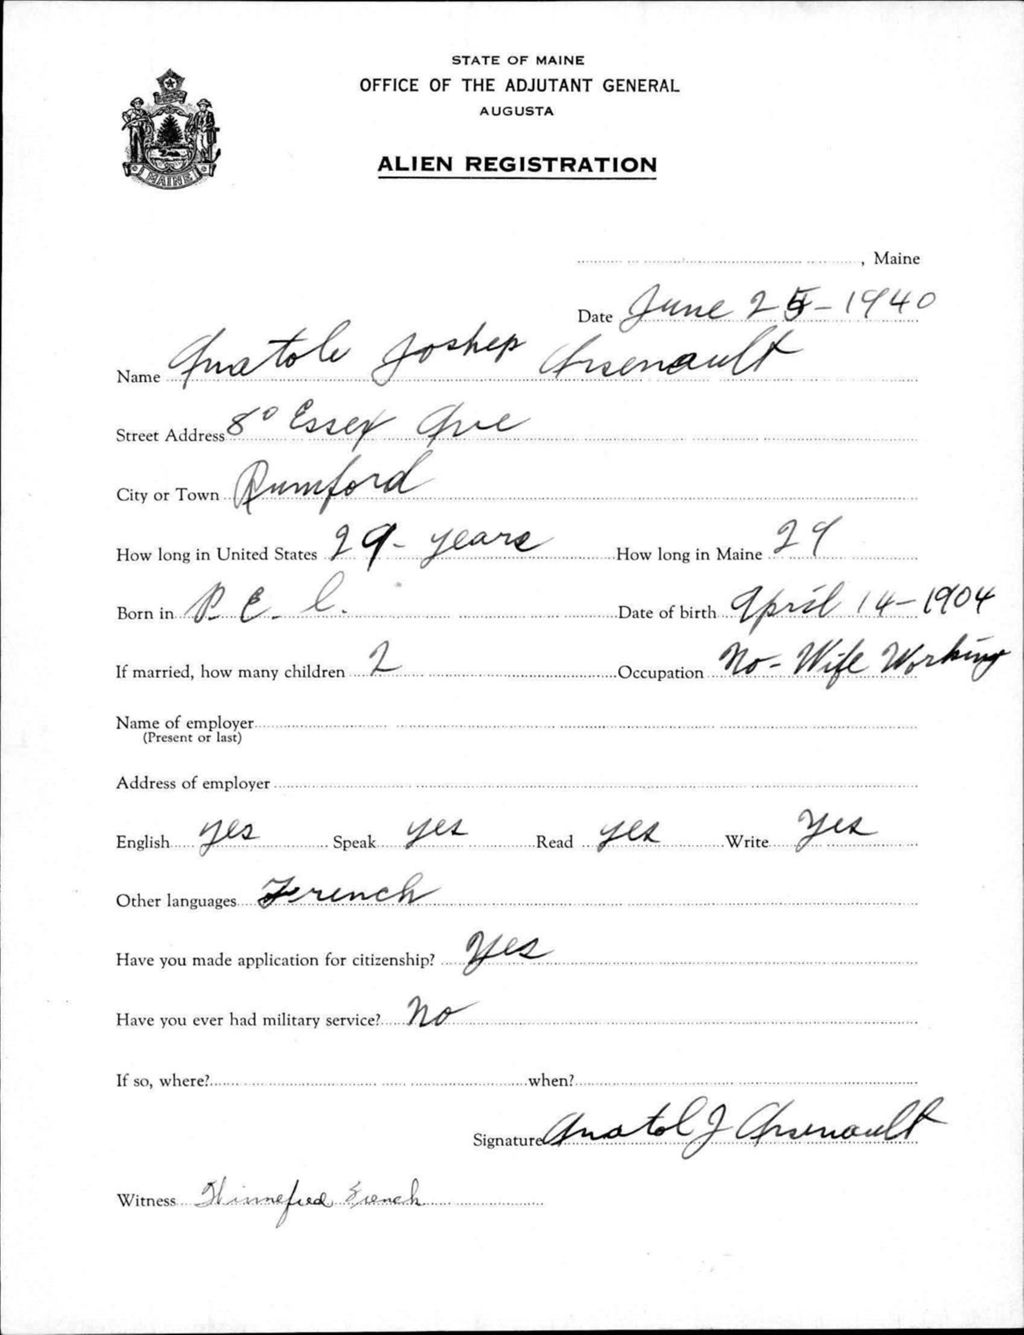 STATE OF MAINE
OFFICE OF THE ADJUTANT GENERAL
AUGUSTA
ALIEN REGISTRATION
MAINE
, Maine
Date June 25-1940
Name Anatole Joshep Arsenault
Street Address 80 Essex Ave
City or Town Rumford
How long in United States 29-years How long in Maine 29
Born in P. E. I. Date of birth April 14-1904
If married, how many children 2 Occupation No-Wife Working
Name of employer
(Present or last)
Address of employer
English yes Speak yes Read yes Write Yes
Other languages French
Have you made application for citizenship? Yes
Have you ever had military service? No
If so, where? when?
Signature Anatol J Arsenault
Witness Winnefred French